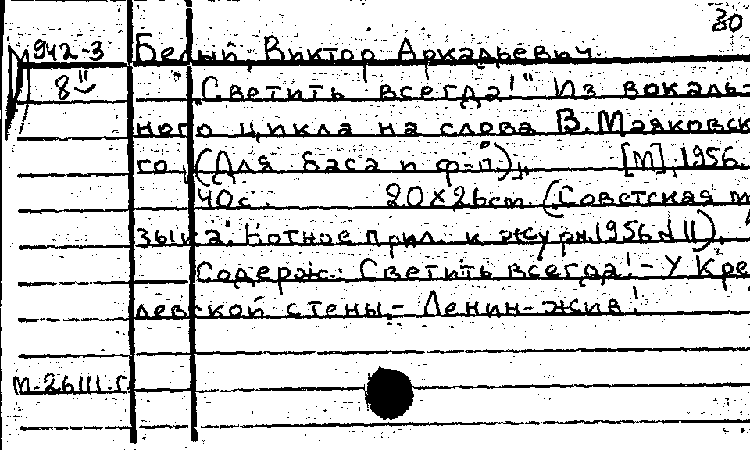 30
942-3 Белый, Виктор Аркадьевич.
8" "Светить всегда!" Из вокаль-
ного цикла на слова В. Маяковск
го, (Для баса и ф-п.). [М], 1956.
40с. 20х26см (Советская м
зыка. Нотное прил. к журн. 1956 № 11).
Содерж.: Светить всегда! - У Кре
левской стены. - Ленин - жив!
М-26111.Г.